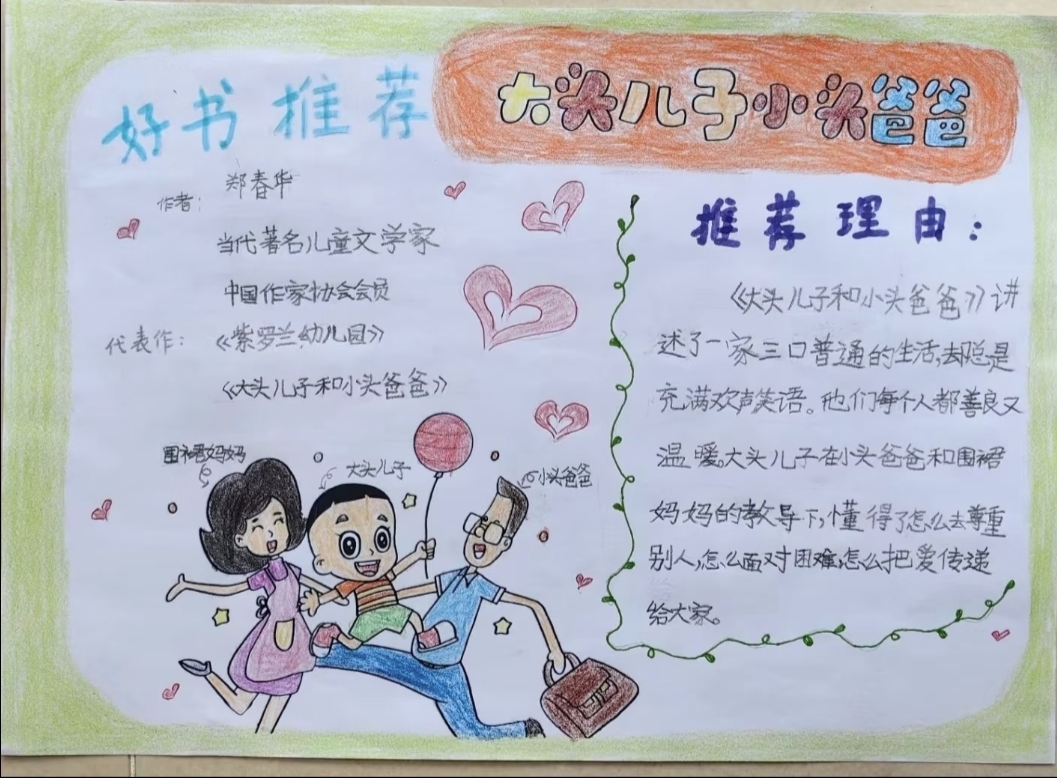 好书推荐
大头儿子小头爸爸
作者：郑春华
当代著名儿童文学家
中国作家协会会员
代表作：《紫罗兰幼儿园》
《大头儿子和小头爸爸》
围裙妈妈
大头儿子
小头爸爸
推荐理由：
《大头儿子和小头爸爸》讲
述了一家三口普通的生活，却总是
充满欢声笑语。他们每个人都善良又
温暖。大头儿子在小头爸爸和围裙
妈妈的教导下，懂得了怎么去尊重
别人，怎么面对困难，怎么把爱传递
给大家。